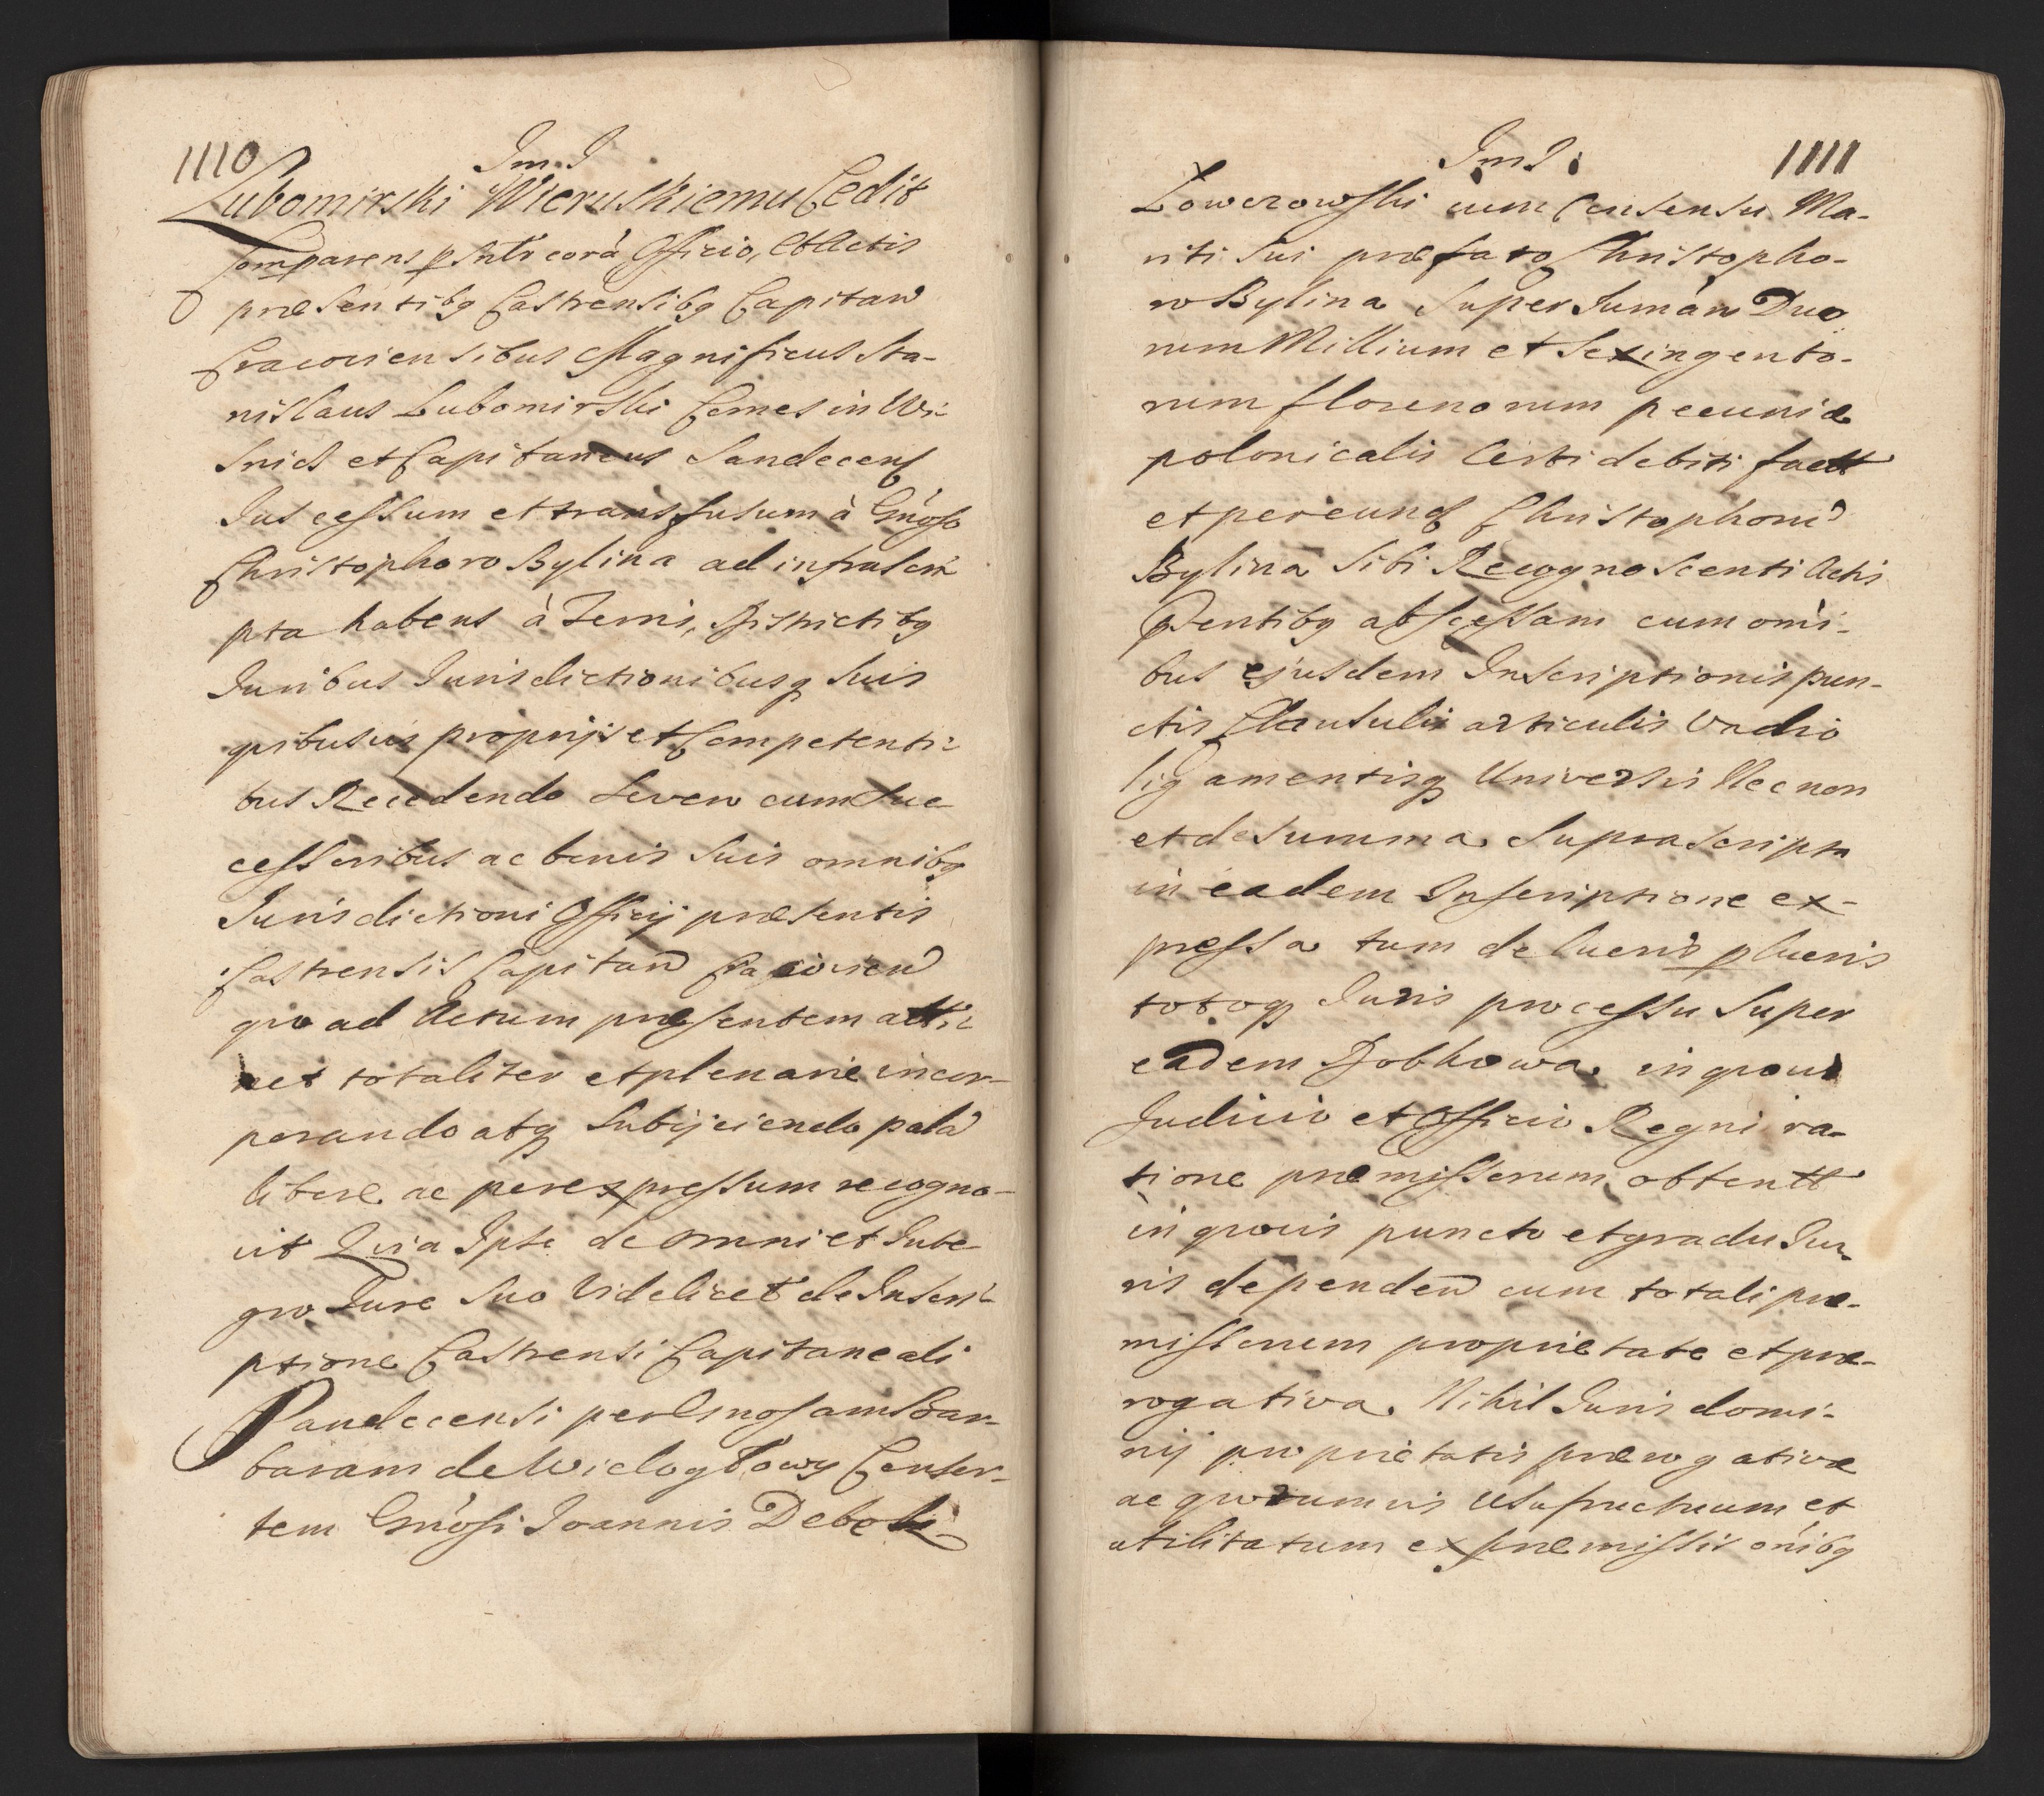 1110
Im. I
Lubomirski Wieruskiemu Cedit
Comparens psnlr corā Officio, Et Actis
præsentibq Castrensibq Capitan
Cracoviensibus Magnificus Sta-
nislaus Lubomirski Comes in Wi-
snicz et Capitaneus Sandecens
Jus cessum et transfusum à Gnoso
Christophoro Bylina ad infrascri
pta habens à Terris, Districtibq
Juribus Jurisdictionibusq suis
quibusvis proprijs et Competenti-
bus Recedendo Se vero cum suc
cessoribus ac bonis suis omnibq
Jurisdictioni Officij præsentis
Castrensis Capitan Cracovien
quo ad Actum præsentem atti-
net totaliter et plenarie incor-
porando atq Subijciendo palā
libere ac per expressum recogno-
vit Quia Ipse de omni et Inte-
gro Jure suo videlicet de Inscri-
ptione Castrensi Capitaneali
Sandecensi per Gnosam Bar-
baram de Wielogłowy Consor-
tem Gnosi Joannis Deboli
Im I.
1111
Lowczowski cum Consensu Ma-
riti sui præfato Christopho-
ro Bylina super sumam Duo
rum Millium et Sexingento-
rum florenorum pecuniæ
polonicalis Certi debiti fact
et per eund Christophorū
Bylina sibi Recognoscenti Actis
Pentibq abscessam cum omni-
bus ejusdem Inscriptionis pun-
ctis Clausulis articulis Vadio
ligamentisq Universis Necnon
et de summa suprascripta
in eadem Inscriptione ex-
pressa tum de lucris p lucris
totoq Juris processu super
eadem Dobkowa in quovis
Judicio et Officio Regni ra-
tione præmissorum obtent
in quovis puncto et gradu Ju-
ris dependen cum totali præ-
missorum proprietate et præ-
rogativa Nihil Juris domi-
nij proprietatis prærogativæ
ac quorumvis Usufructuum et
utilitatum ex præmissis oīnibq